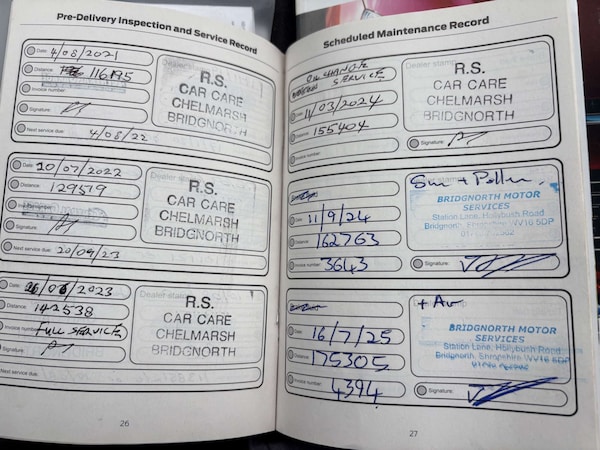 Pre-Delivery Inspection and Service Record
Date: 4/08/2021
Distance: 116195
Invoice number:
Signature:
Next service due: 4/08/22
Dealer stamp:
R.S.
CAR CARE
CHELMARSH
BRIDGNORTH
Date: 10/07/2022
Distance: 129519
Signature:
Next service due: 20/09/23
Dealer stamp:
R.S.
CAR CARE
CHELMARSH
BRIDGNORTH
/2023
Distance: 142538
Invoice number: FULL SERVICE
Signature:
Next service due:
Dealer stamp:
R.S.
CAR CARE
CHELMARSH
BRIDGNORTH
26
Scheduled Maintenance Record
OIL CHANGE
SERVICE
Date: 14/03/2024
Distance: 155404
Invoice number:
Dealer stamp:
R.S.
CAR CARE
CHELMARSH
BRIDGNORTH
Signature:
Date: 11/9/24
Distance: 162763
Invoice number: 3643
BRIDGNORTH MOTOR
SERVICES
Station Lane, Hollybush Road
Bridgnorth, Shropshire WV16 5DP
Signature:
Date: 16/7/25
Distance: 175305
Invoice number: 4394
BRIDGNORTH MOTOR
SERVICES
Station Lane, Hollybush Road
Bridgnorth, Shropshire WV16 5DP
Signature:
27